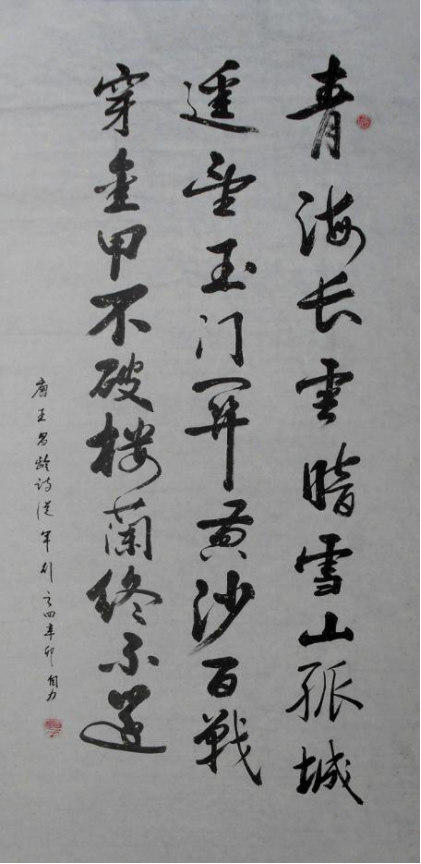 青海长雲暗雪山孤城
遥望玉门关黄沙百戰
穿金甲不破楼蘭终不還
唐王昌龄诗從军行之四辛卯自力